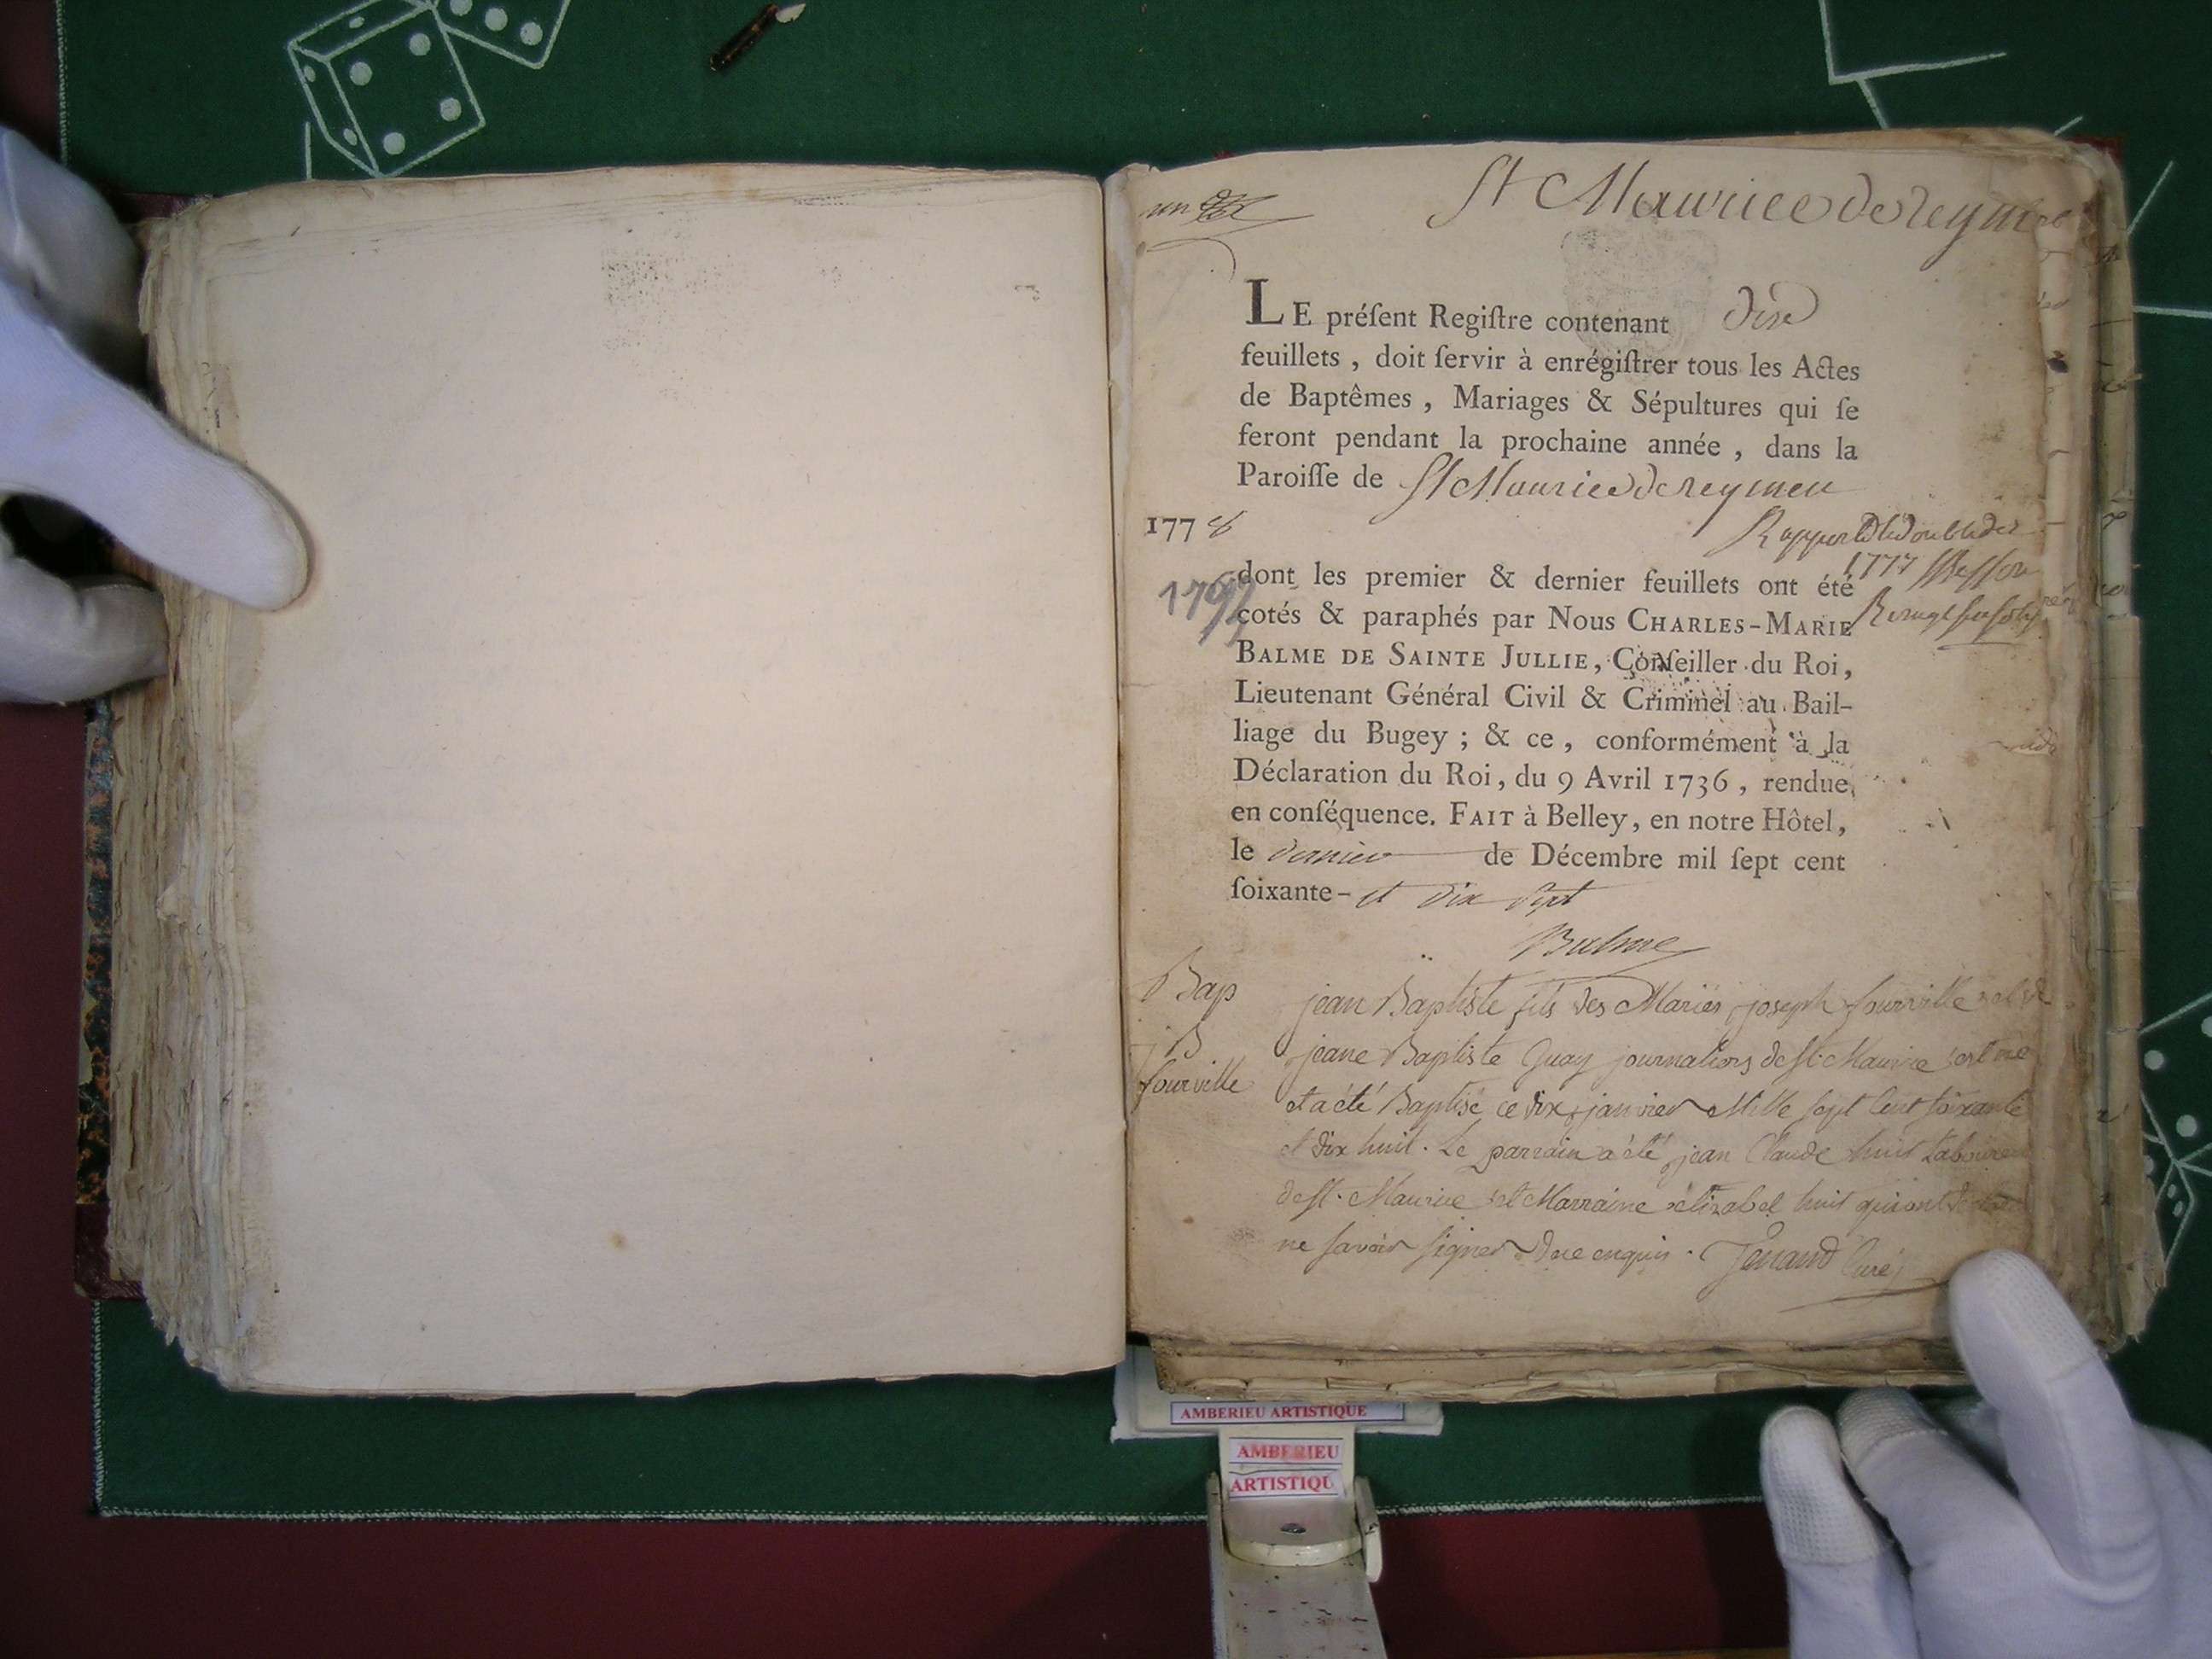 un
St Maurice de reymens
LE préſent Regiſtre contenant dix
feuillets, doit ſervir à enrégiſtrer tous les Actes
de Baptêmes, Mariages & Sépultures qui ſe
feront pendant la prochaine année, dans la
Paroiſſe de St Maurice de reymen
1778
Rapporté le double de
1777
1792
dont les premier & dernier feuillets ont été
cotés & paraphés par Nous CHARLES-MARIE
BALME DE SAINTE JULLIE, Conſeiller du Roi,
Lieutenant Général Civil & Criminel au Bail-
liage du Bugey ; & ce, conformément à la
Déclaration du Roi, du 9 Avril 1736, rendue
en conſéquence. FAIT à Belley, en notre Hôtel,
le dernier de Décembre mil ſept cent
ſoixante- et dix sept
Balme
Bap
B
fourville
jean Baptiste fils des Mariés joseph fourville et de
jeane Baptiste Quay journaliers de St. Maurice est né
et a été Baptisé ce dix janvier Mille sept Cent soixante
et dix huit. Le parrain a été jean Claude huit Laboureur
de St. Maurice et Marraine elizabel huit qui ont
ne savoir signer de ce enquis. Jenand Curé
AMBERIEU ARTISTIQUE
AMBERIEU
ARTISTIQU